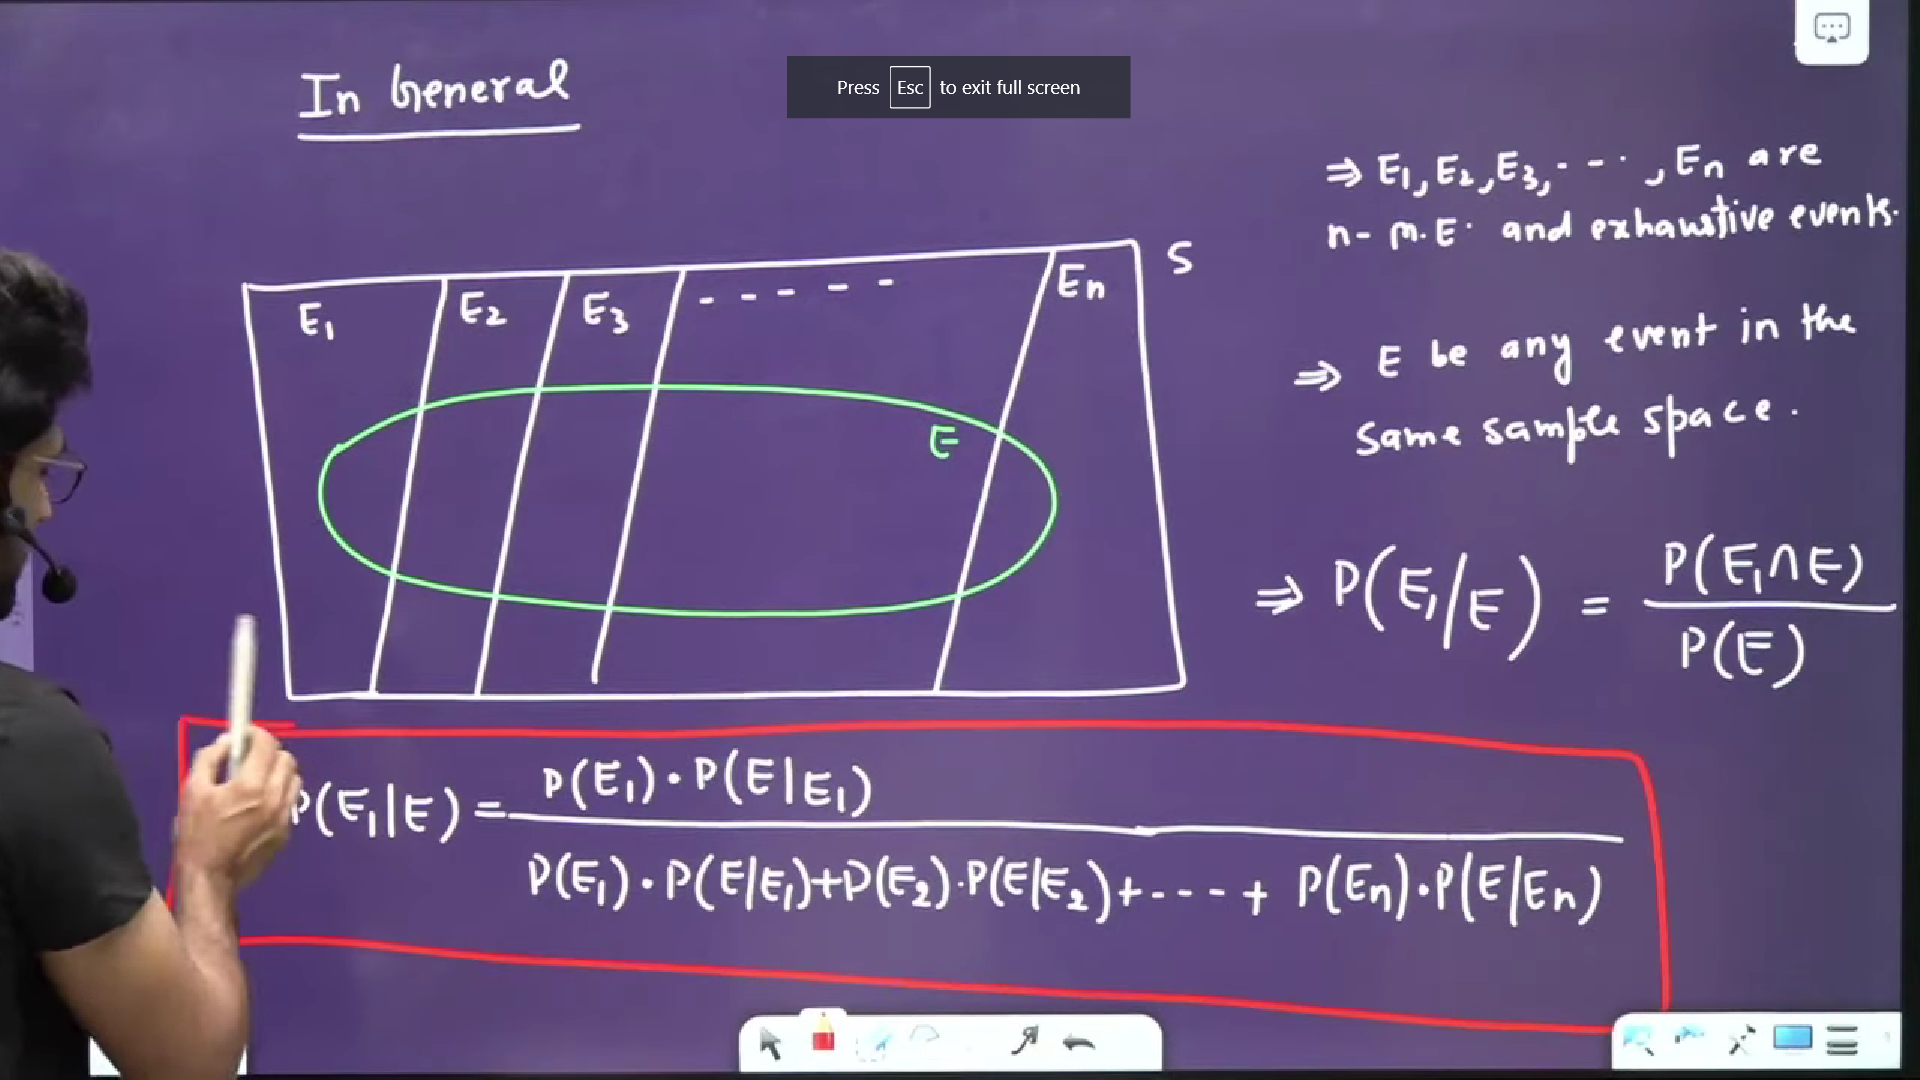 In General
Press Esc to exit full screen
⇒ E₁, E₂, E₃, - - - , En are
n- M.E. and exhaustive events.
S
E₁ E₂ E₃ - - - - - En
E
⇒ E be any event in the
same sample space.
⇒ P(E₁/E) = P(E₁∩E)
P(E)
P(E₁|E) = P(E₁)·P(E|E₁)
P(E₁)·P(E/E₁)+P(E₂)·P(E/E₂)+----+ P(En)·P(E/En)